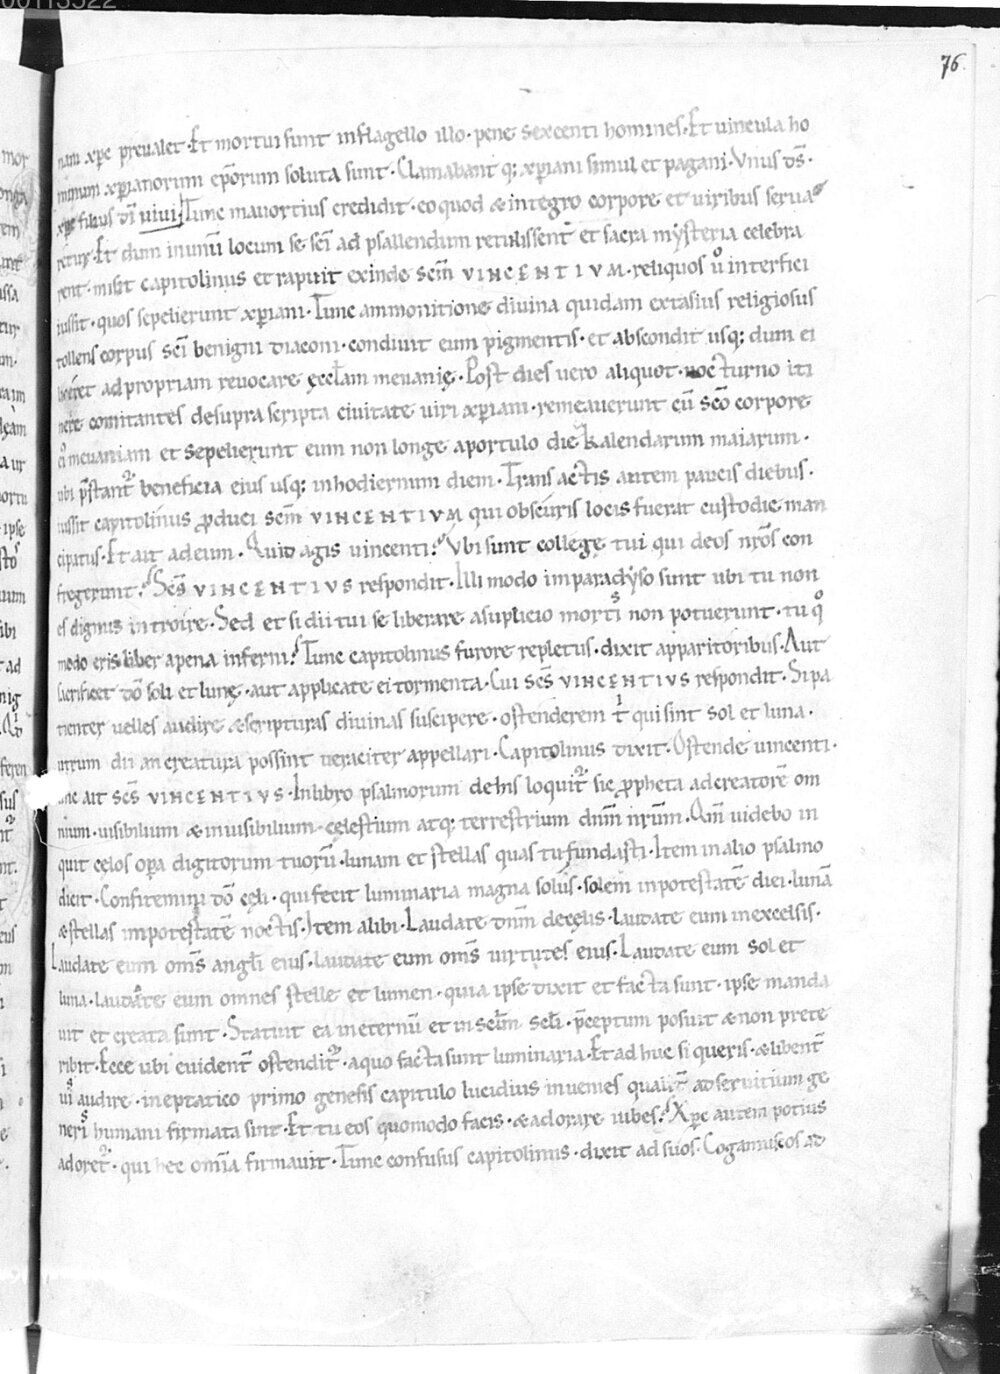 00113522
76.
nam xpc preualet · Et mortui sunt in flagello illo · pene sexcenti homines · Et uincula ho
minum xpianorum eporum soluta sunt · Clamabant q; xpiani simul et pagani · Vnus ds ·
xpc filius di uiui · Tunc mauortius credidit · eo quod & integro corpore et uiribus serua
retur · Et dum in unu locum se sci ad psallendum retulissent et sacra mysteria celebra
rent · misit capitolinus et rapuit exinde scm VINCENTIVM · reliquos u interfici
iussit · quos sepelierunt xpiani · Tunc ammonitione diuina quidam extasius religiosus
tollens corpus sci benigni diaconi · condiuit eum pigmentis · et abscondit usq; dum ei
liceret ad propriam reuocare ęcclam meuanię · Post dies uero aliquot · nocturno iti
nere comitantes desupra scripta ciuitate uiri xpiani · remeauerunt cu sco corpore
meuaniam et sepelierunt eum non longe aportulo die kalendarum maiarum ·
ubi pstant beneficia eius usq; in hodiernum diem · Trans actis autem paucis diebus ·
iussit capitolinus produci scm VINCENTIVM qui obscuris locis fuerat custodie man
cipatus · Et ait ad eum · Quid agis uincenti? Vbi sunt collegę tui qui deos nros con
fregerunt? Scs VINCENTIVS respondit · Illi modo in paradyso sunt ubi tu non
es dignus introire · Sed et si dii tui se liberare asuplicio mortis non potuerunt · tu qo
modo eris liber apena inferni? Tunc capitolinus furore repletus · dixit apparitoribus · Aut
sacrificet do soli et lunę · aut applicate ei tormenta · Cui scs VINCENTIVS respondit · Si pa
tienter uelles audire & scripturas diuinas suscipere · ostenderem ti qui sint sol et luna ·
utrum dii an creatura possint ueraciter appellari · Capitolinus dixit · Ostende uincenti ·
unc ait scs VINCENTIVS · In libro psalmorum de his loquit sic propheta ad creatore om
nium · uisibilium & inuisibilium · cęlestium atq; terrestrium dnm nrum · Qm uidebo in
quit cęlos opa digitorum tuoru · lunam et stellas quas tu fundasti · Item in alio psalmo
dicit · Confitemini do cęli · qui fecit luminaria magna solus · solem in potestate diei · luna
& stellas in potestate noctis · Item alibi · Laudate dnm de cęlis · laudate eum in excelsis ·
Laudate eum oms angli eius · laudate eum oms uirtutes eius · Laudate eum sol et
luna · laudate eum omnes stelle et lumen · quia ipse dixit et facta sunt · ipse manda
uit et creata sunt · Statuit ea in eternu et in sclm scli · pceptum posuit & non prete
ribit · Ecce ubi euident ostendit · aquo facta sunt luminaria · Et ad huc si queris · & libent
uis audire · in eptatico primo genesis capitulo lucidius inuenies qualit ad seruitium ge
neris humani firmata sint · Et tu eos quomodo facis · & adorare iubes? Xpc autem potius
adoret · qui hec omia firmauit · Tunc confusus capitolinus · dixit ad suos · Cogamus eos ad